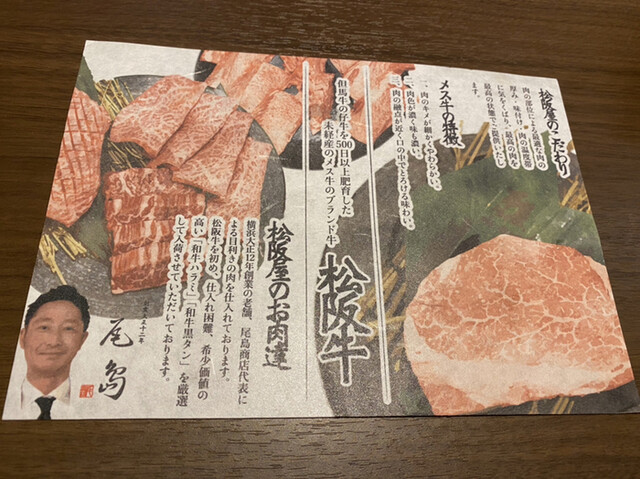 松阪屋のこだわり
肉の部位による最適な肉の
厚み・味付け、肉の温度帯
に気をくばり、最高の肉を
最高の状態でご提供いたし
ます。
メス牛の特徴
一、肉のキメが細かくやわらかい。
二、肉色が濃く味も濃い。
三、肉の融点が近く口の中でとろける味わい。
松阪牛
但馬牛の仔牛を500日以上肥育した
未経産のメス牛のブランド牛
松阪屋のお肉達
横浜大正12年創業の老舗、尾島商店代表に
よる目利きの肉を仕入れております。
松阪牛を初め、仕入れ困難、希少価値の
高い「和牛ハラミ」「和牛黒タン」を厳選
して入荷させていただいております。
尾島